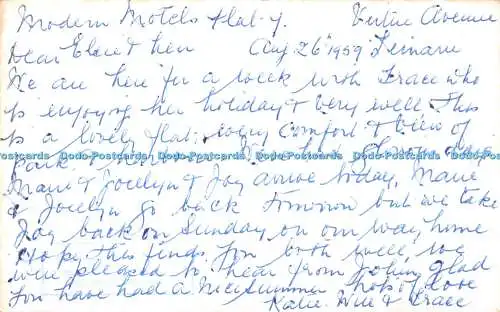 Modern Motels flat 4. Virtue Avenue
Dear Elsie & Ken Aug 26" 1959 Timaru
We are here for a week with Grace who
is enjoying her holiday & very well. This
is a lovely flat: every comfort & view of
park
Dodo-Postcards Dodo-Postcards Dodo-Postcards Dodo-Postcards Dodo-Postcards Dodo-Postcards
Marie & Jocelyn & Joy arrive today, Marie
& Jocelyn go back tomorrow but we take
Joy back on Sunday, on our way home
Hope this finds you both well, we
were pleased to hear from John, glad
you have had a nice summer. hops of love
Katie. Will & Grace